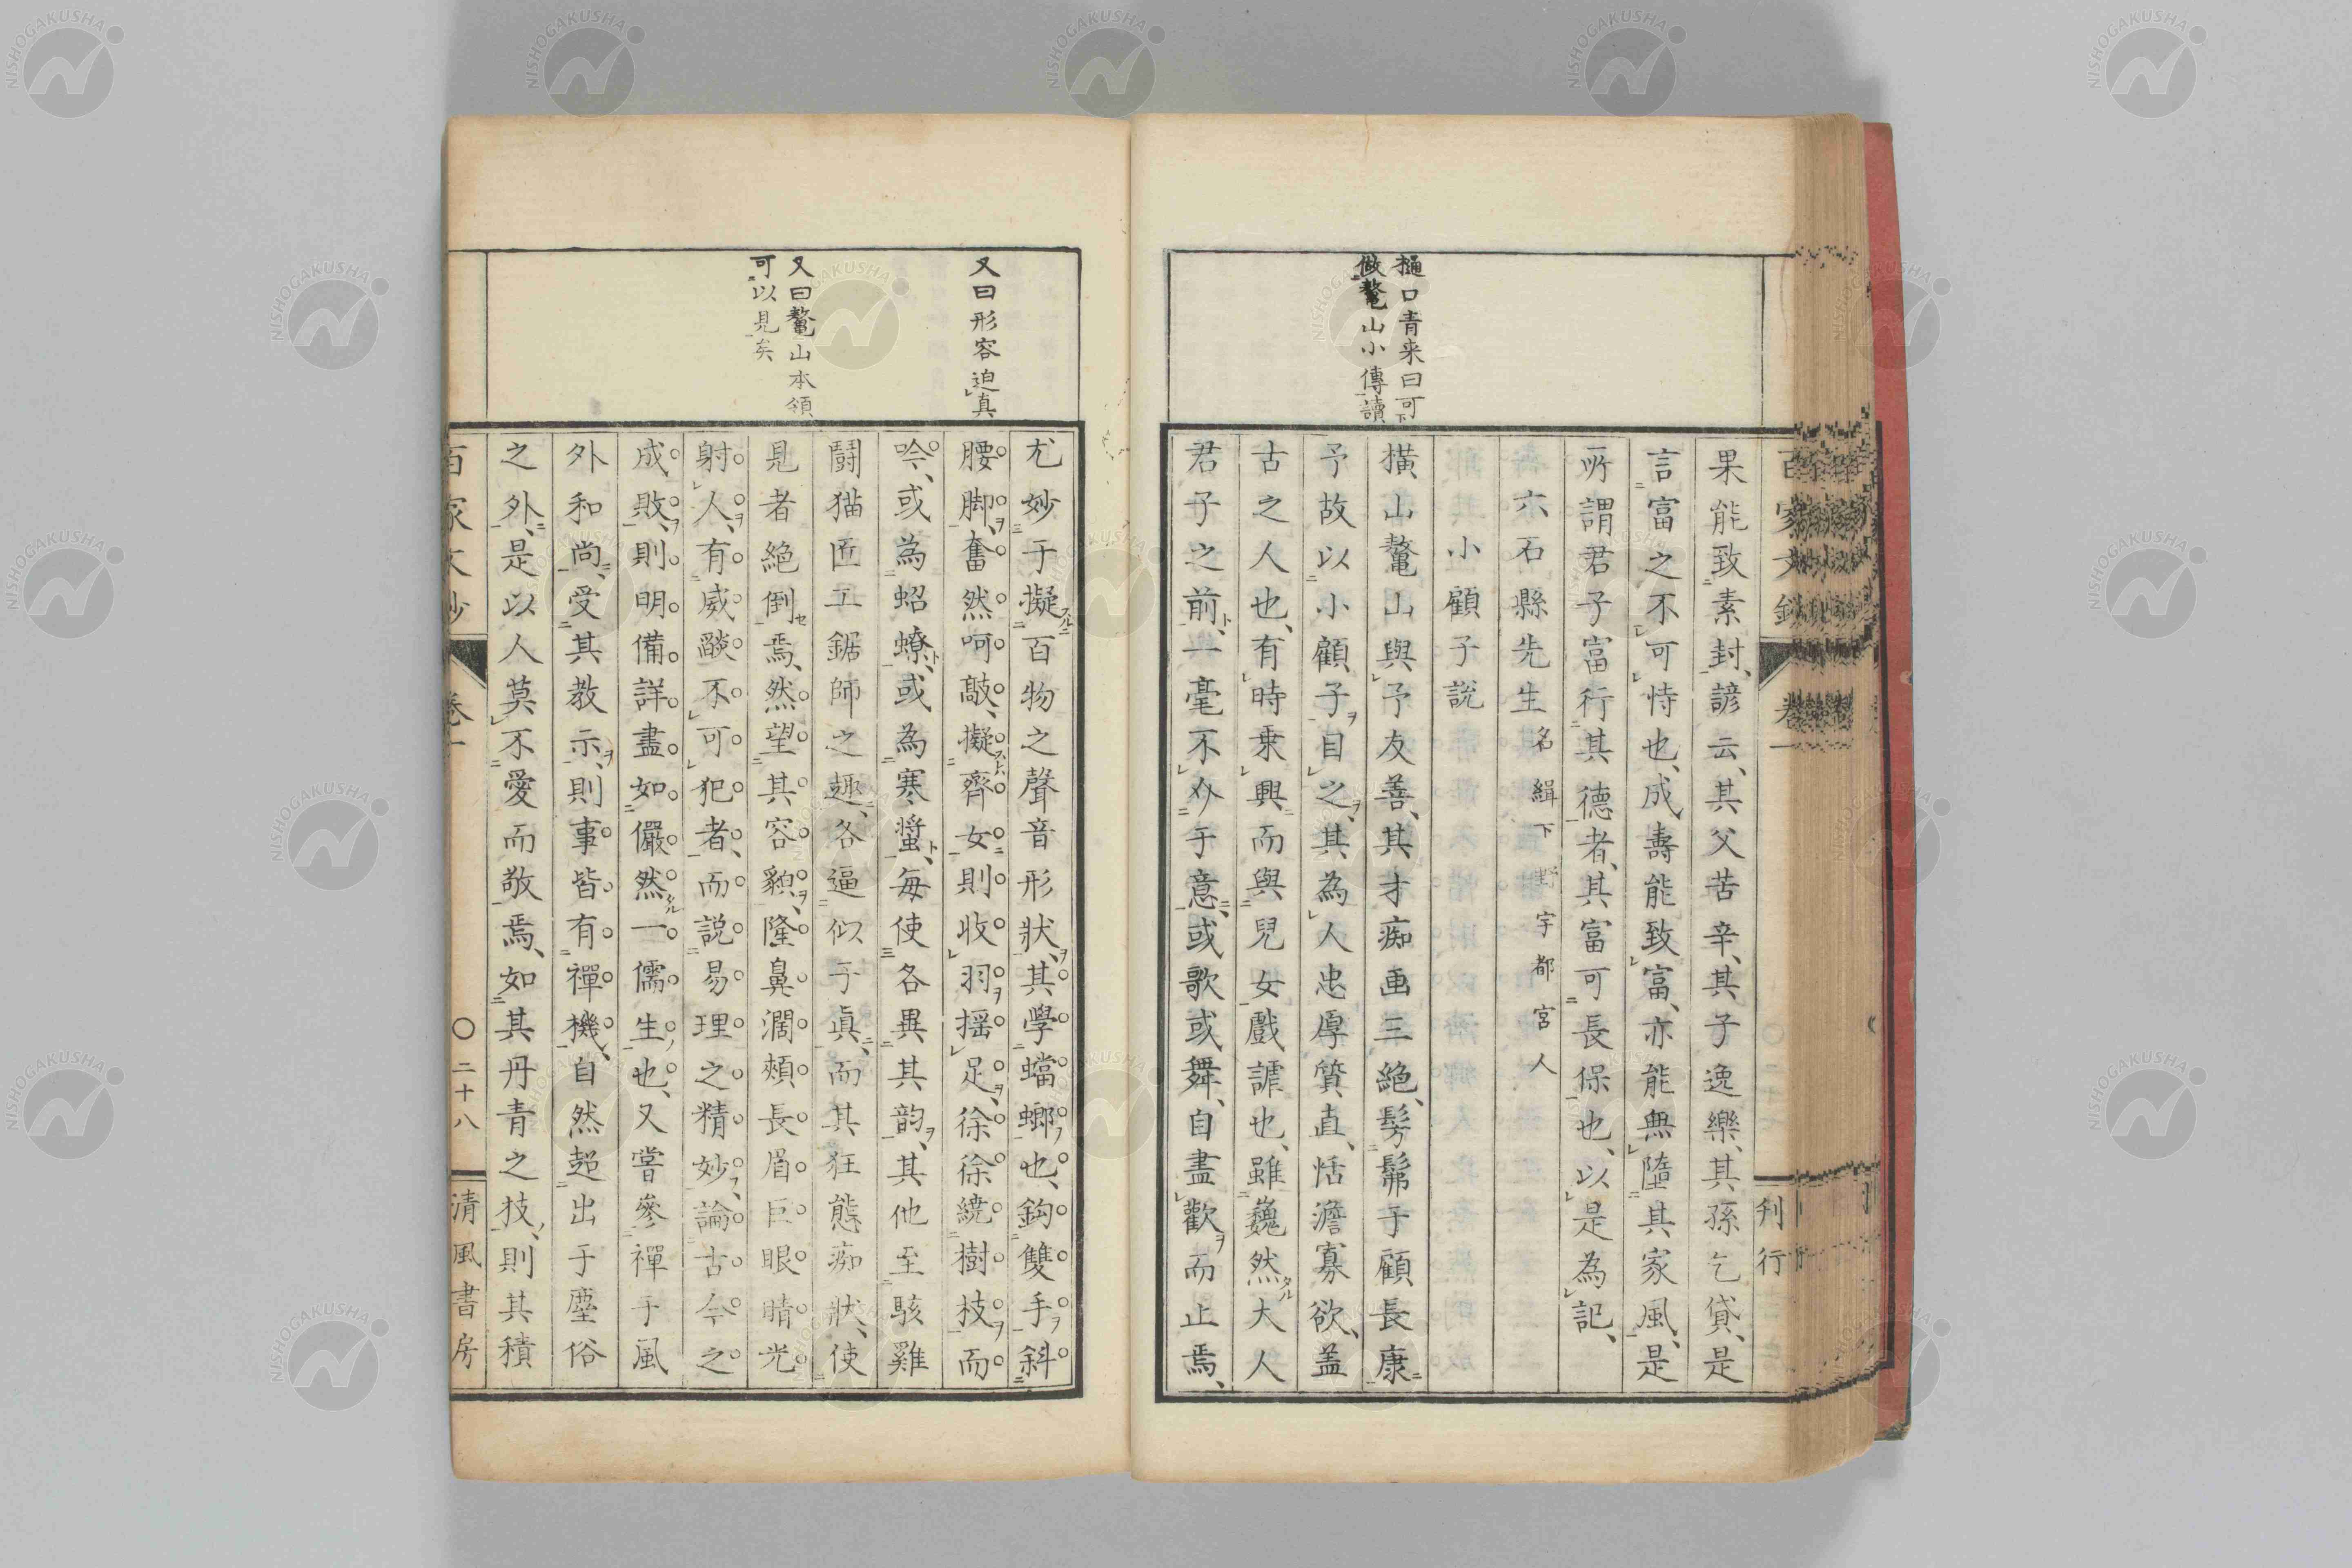 樋口青来曰可
做鼇山小傳讀
果能致素封、諺云、其父苦辛、其子逸樂、其孫乞貸、是
言富之不可恃也、成壽能致富、亦能無墮其家風、是
所謂君子富行其德者、其富可長保也、以是為記、
六石縣先生 名緝下野宇都宮人
小顧子說
橫山鼇山與予友善、其才痴画三絕、髣髴于顧長康
予故以小顧子目之、其為人忠厚質直、恬澹寡欲、盖
古之人也、有時乗興而與兒女戲謔也、雖巍然大人
君子之前、一毫不介于意、或歌或舞、自盡歡而止焉、
又曰形容迫真
又曰鼇山本領
可以見矣
尤妙于擬百物之聲音形狀、其學蟷螂也、鈎雙手、斜
腰脚、奮然呵敲、擬齊女則收羽揺足、徐徐繞樹枝而
吟、或為蛁蟟、或為寒螿、每使各異其韵、其他至駭雞
鬪猫匠工鋸師之趣、各逼似于眞、而其狂態痴狀、使
見者絕倒焉、然望其容貌、隆鼻濶頰長眉巨眼晴光
射人、有威燄不可犯者、而說易理之精妙、論古今之
成敗、則明備詳盡如儼然一儒生也、又嘗參禪于風
外和尚、受其教示、則事皆有禪機、自然超出于塵俗
之外、是以人莫不愛而敬焉、如其丹青之技、則其積
百家文鈔 卷一 〇二十八 清風書房
百家文鈔 卷一 刋行
NISHOGAKUSHA